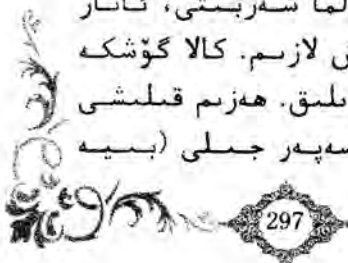 لما سەربىتى، ئانار
ش لازىم. كالا گۆشكە
ىلىق. ھەزىم قىلىشى
سەپەر جىلى (بىيە
297